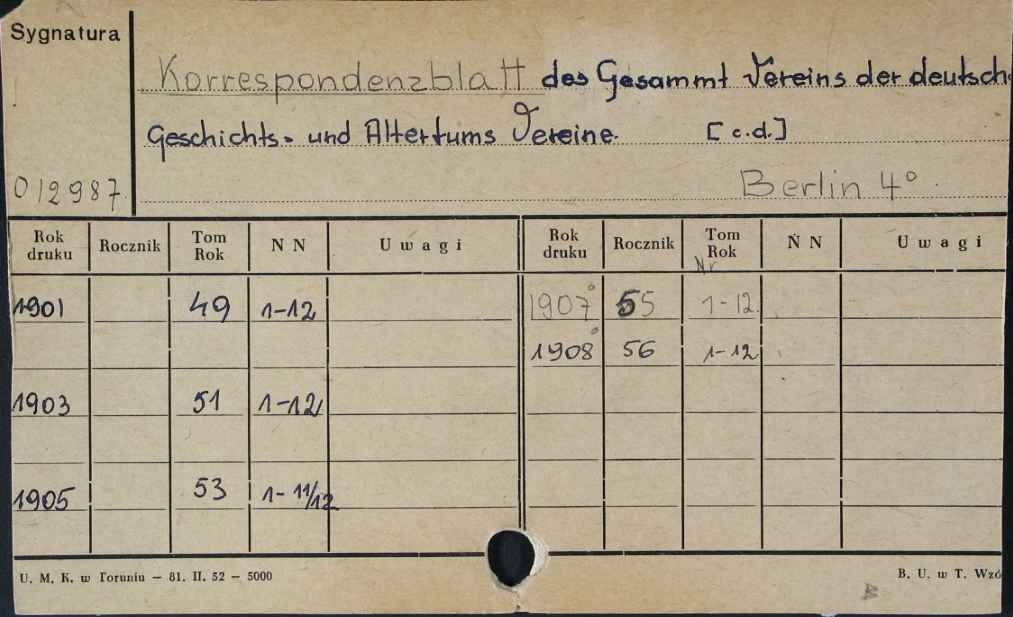 Sygnatura
Korrespondenzblatt des Gesammt Vereins der deutsch.
Geschichts- und Altertums Vereine. [c.d.]
012987 Berlin 4°
Rok druku Rocznik Tom Rok N N Uwagi Rok druku Rocznik Tom Rok N N Uwagi
Nr
1901 49 1-12 1907 55 1-12
1908 56 1-12
1903 51 1-12
1905 53 1-11/12
U. M. K. w Toruniu — 81. II. 52 — 5000 B. U. w T. Wzó